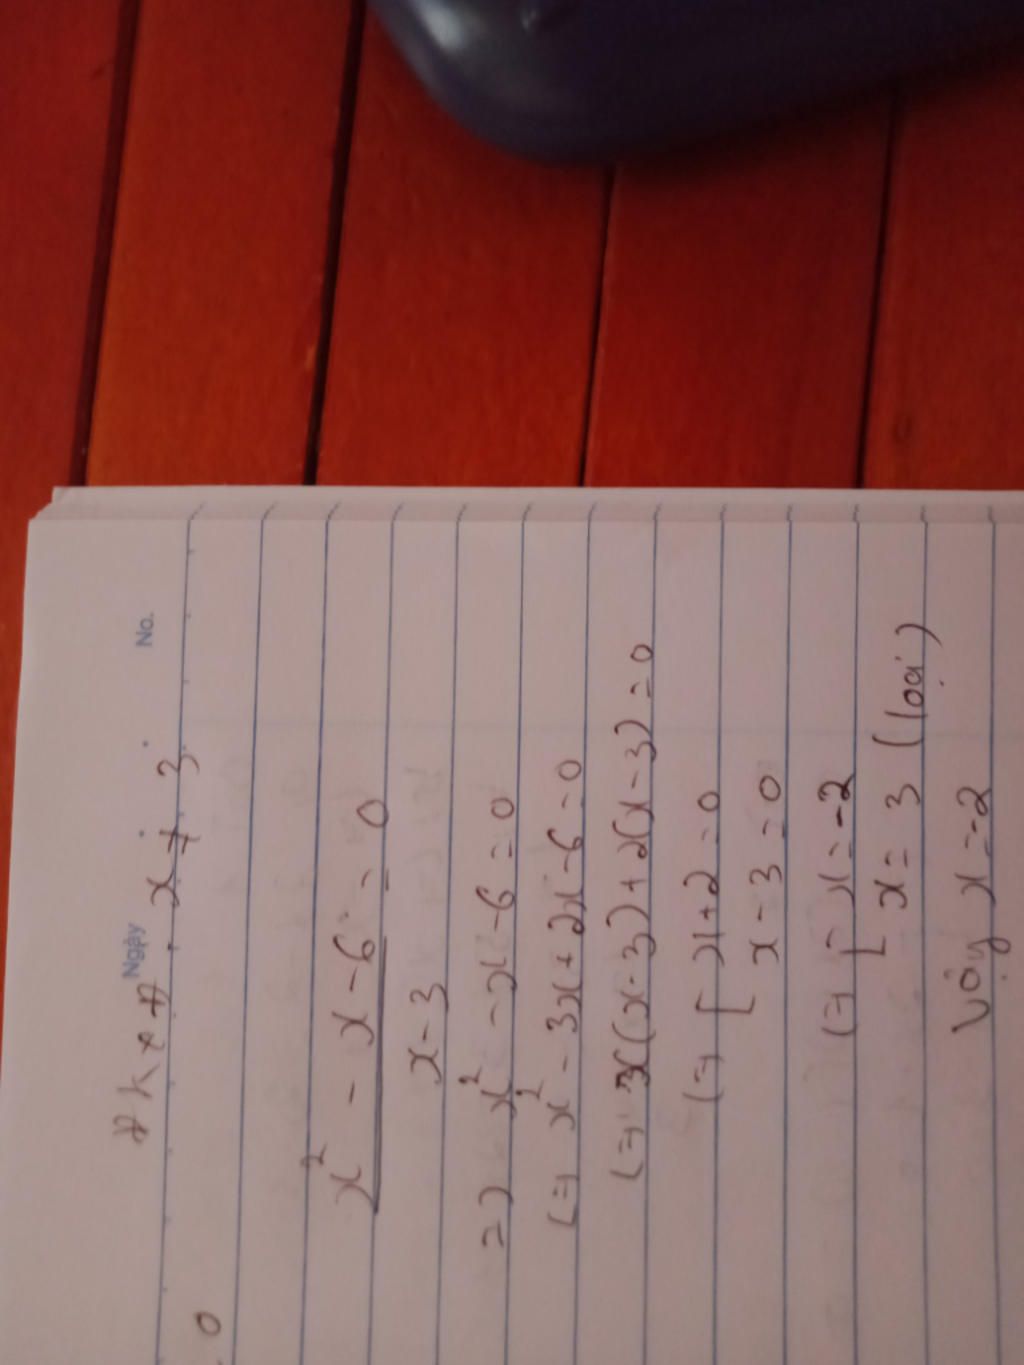 Ngày No.
ĐKXĐ x ≠ 3
x² - x - 6 = 0
x - 3
=> x² - x - 6 = 0
(=) x² - 3x + 2x - 6 = 0
(=) x(x - 3) + 2(x - 3) = 0
(=) [ x + 2 = 0
x - 3 = 0
(=) [ x = -2
[ x = 3 (loại)
Vậy x = -2
0